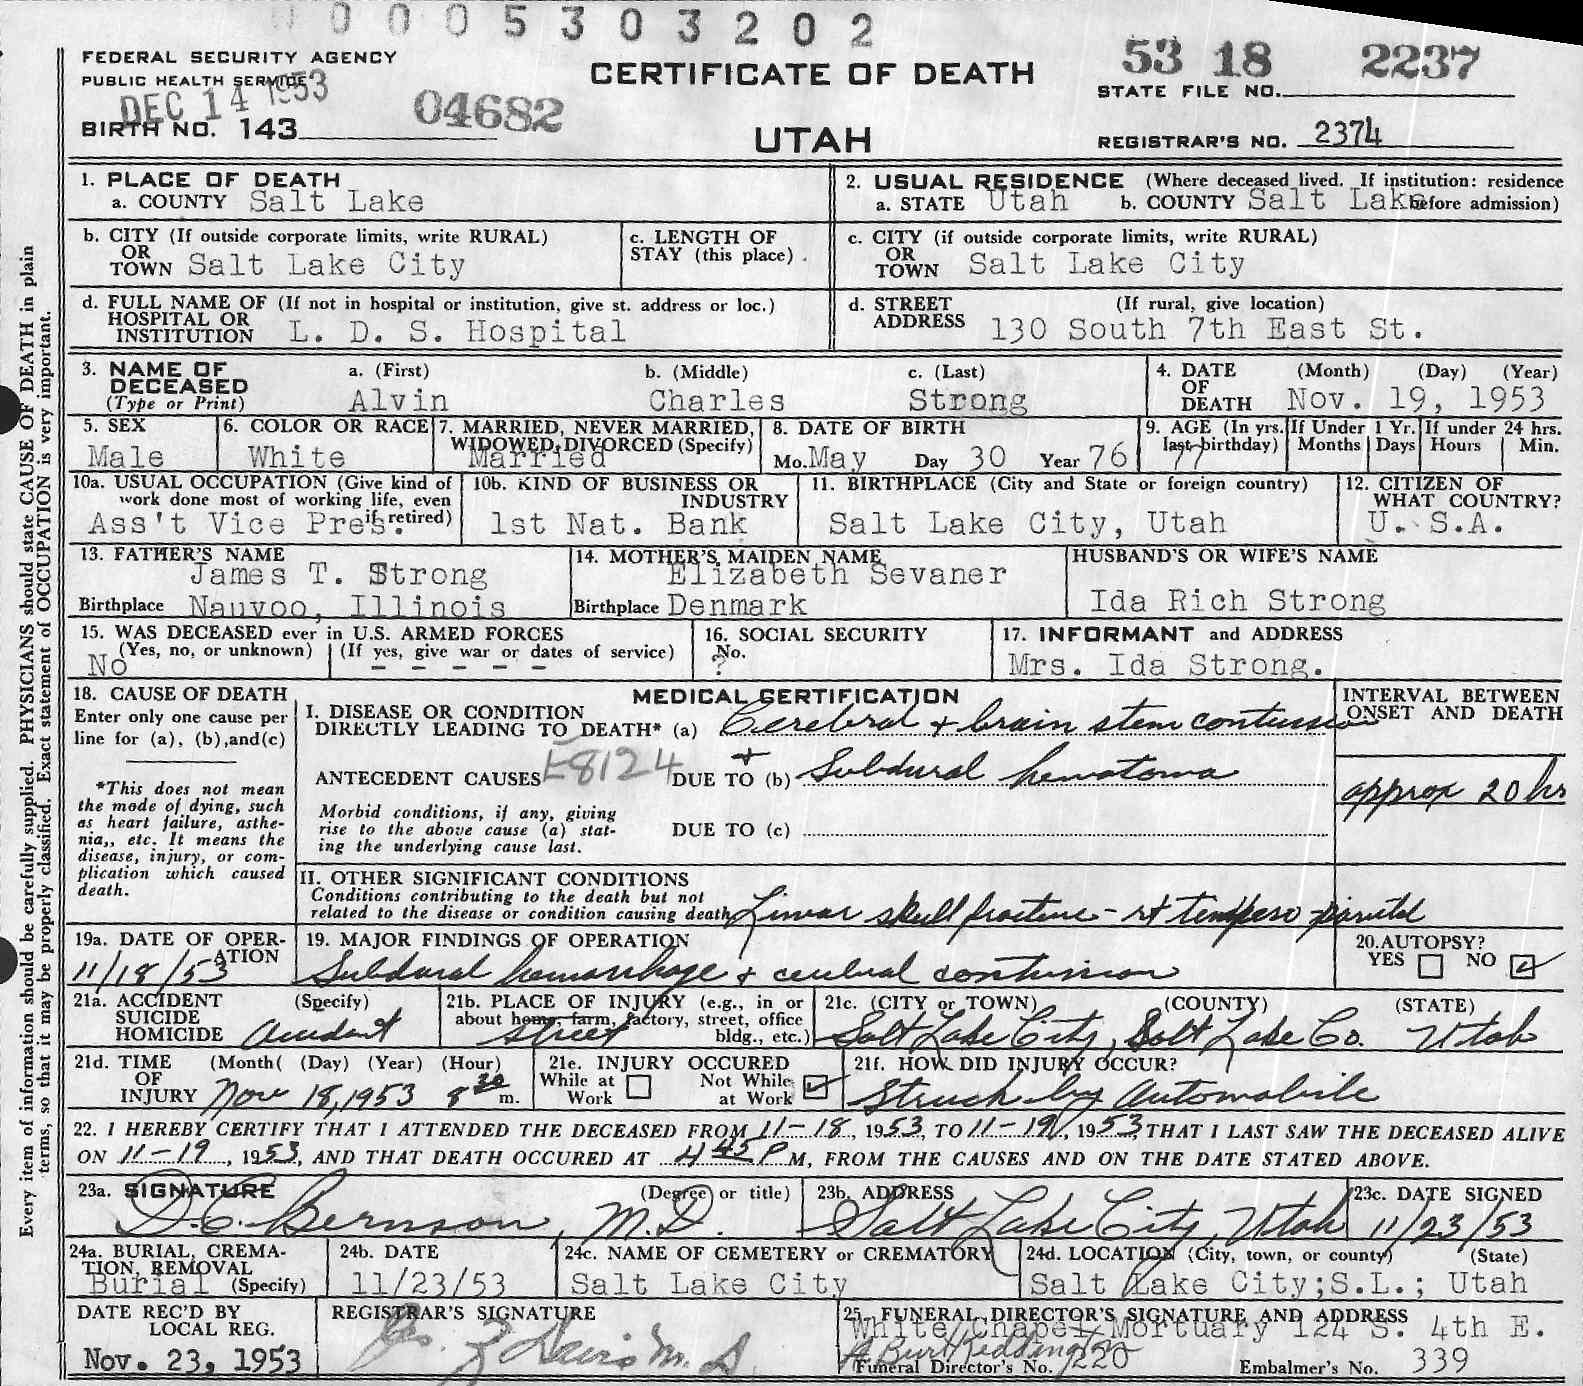 0005303202
FEDERAL SECURITY AGENCY
PUBLIC HEALTH SERVICE
DEC 14 1953
CERTIFICATE OF DEATH
UTAH
53 18 2237
STATE FILE NO.
BIRTH NO. 143
04682
REGISTRAR'S NO. 2374
Every item of information should be carefully supplied. PHYSICIANS should state CAUSE OF DEATH in plain
terms, so that it may be properly classified. Exact statement of OCCUPATION is very important.
1. PLACE OF DEATH
a. COUNTY Salt Lake
2. USUAL RESIDENCE (Where deceased lived. If institution: residence
before admission)
a. STATE Utah b. COUNTY Salt Lake
b. CITY (If outside corporate limits, write RURAL)
OR
TOWN Salt Lake City
c. LENGTH OF
STAY (this place)
c. CITY (if outside corporate limits, write RURAL)
OR
TOWN Salt Lake City
d. FULL NAME OF (If not in hospital or institution, give st. address or loc.)
HOSPITAL OR
INSTITUTION L. D. S. Hospital
d. STREET (If rural, give location)
ADDRESS 130 South 7th East St.
3. NAME OF
DECEASED
(Type or Print)
a. (First) b. (Middle) c. (Last)
Alvin Charles Strong
4. DATE (Month) (Day) (Year)
OF
DEATH Nov. 19, 1953
5. SEX
Male
6. COLOR OR RACE
White
7. MARRIED, NEVER MARRIED,
WIDOWED, DIVORCED (Specify)
Married
8. DATE OF BIRTH
Mo. May Day 30 Year 76
9. AGE (In yrs.
last birthday)
77
If Under 1 Yr.
Months Days
If under 24 hrs.
Hours Min.
10a. USUAL OCCUPATION (Give kind of
work done most of working life, even
if retired)
Ass't Vice Pres.
10b. KIND OF BUSINESS OR
INDUSTRY
1st Nat. Bank
11. BIRTHPLACE (City and State or foreign country)
Salt Lake City, Utah
12. CITIZEN OF
WHAT COUNTRY?
U. S.A.
13. FATHER'S NAME
James T. Strong
Birthplace Nauvoo, Illinois
14. MOTHER'S MAIDEN NAME
Elizabeth Sevaner
Birthplace Denmark
HUSBAND'S OR WIFE'S NAME
Ida Rich Strong
15. WAS DECEASED ever in U.S. ARMED FORCES
(Yes, no, or unknown) (If yes, give war or dates of service)
No - - - - -
16. SOCIAL SECURITY
No.
?
17. INFORMANT and ADDRESS
Mrs. Ida Strong.
18. CAUSE OF DEATH
Enter only one cause per
line for (a), (b), and (c)
*This does not mean
the mode of dying, such
as heart failure, asthe-
nia,, etc. It means the
disease, injury, or com-
plication which caused
death.
MEDICAL CERTIFICATION
I. DISEASE OR CONDITION
DIRECTLY LEADING TO DEATH* (a) Cerebral + brain stem contusion
+
ANTECEDENT CAUSES E8124 DUE TO (b) Subdural hematoma
Morbid conditions, if any, giving
rise to the above cause (a) stat-
ing the underlying cause last.
DUE TO (c)
INTERVAL BETWEEN
ONSET AND DEATH
approx 20 hs
II. OTHER SIGNIFICANT CONDITIONS
Conditions contributing to the death but not
related to the disease or condition causing death
Linear skull fracture - rt temporo parietal
19a. DATE OF OPER-
ATION
11/18/53
19. MAJOR FINDINGS OF OPERATION
Subdural hemorrhage + cerebral contusion
20. AUTOPSY?
YES NO
21a. ACCIDENT (Specify)
SUICIDE
HOMICIDE Accident
21b. PLACE OF INJURY (e.g., in or
about home, farm, factory, street, office
bldg., etc.)
street
21c. (CITY or TOWN) (COUNTY) (STATE)
Salt Lake City, Salt Lake Co. Utah
21d. TIME (Month) (Day) (Year) (Hour)
OF
INJURY Nov 18, 1953 8 30 m.
21e. INJURY OCCURED
While at Work Not While at Work
21f. HOW DID INJURY OCCUR?
Struck by Automobile
22. I HEREBY CERTIFY THAT I ATTENDED THE DECEASED FROM 11-18, 1953, TO 11-19, 1953, THAT I LAST SAW THE DECEASED ALIVE
ON 11-19, 1953, AND THAT DEATH OCCURED AT 4 45 P M, FROM THE CAUSES AND ON THE DATE STATED ABOVE.
23a. SIGNATURE (Degree or title)
D.C. Bernson, M.D.
23b. ADDRESS
Salt Lake City, Utah
23c. DATE SIGNED
11/23/53
24a. BURIAL, CREMA-
TION, REMOVAL
Burial (Specify)
24b. DATE
11/23/53
24c. NAME OF CEMETERY or CREMATORY
Salt Lake City
24d. LOCATION (City, town, or county) (State)
Salt Lake City;S.L.; Utah
DATE REC'D BY
LOCAL REG.
Nov. 23, 1953
REGISTRAR'S SIGNATURE
Davis M. D
25. FUNERAL DIRECTOR'S SIGNATURE AND ADDRESS
White Chapel Mortuary 124 S. 4th E.
A Burt Keddington
Funeral Director's No. 220 Embalmer's No. 339